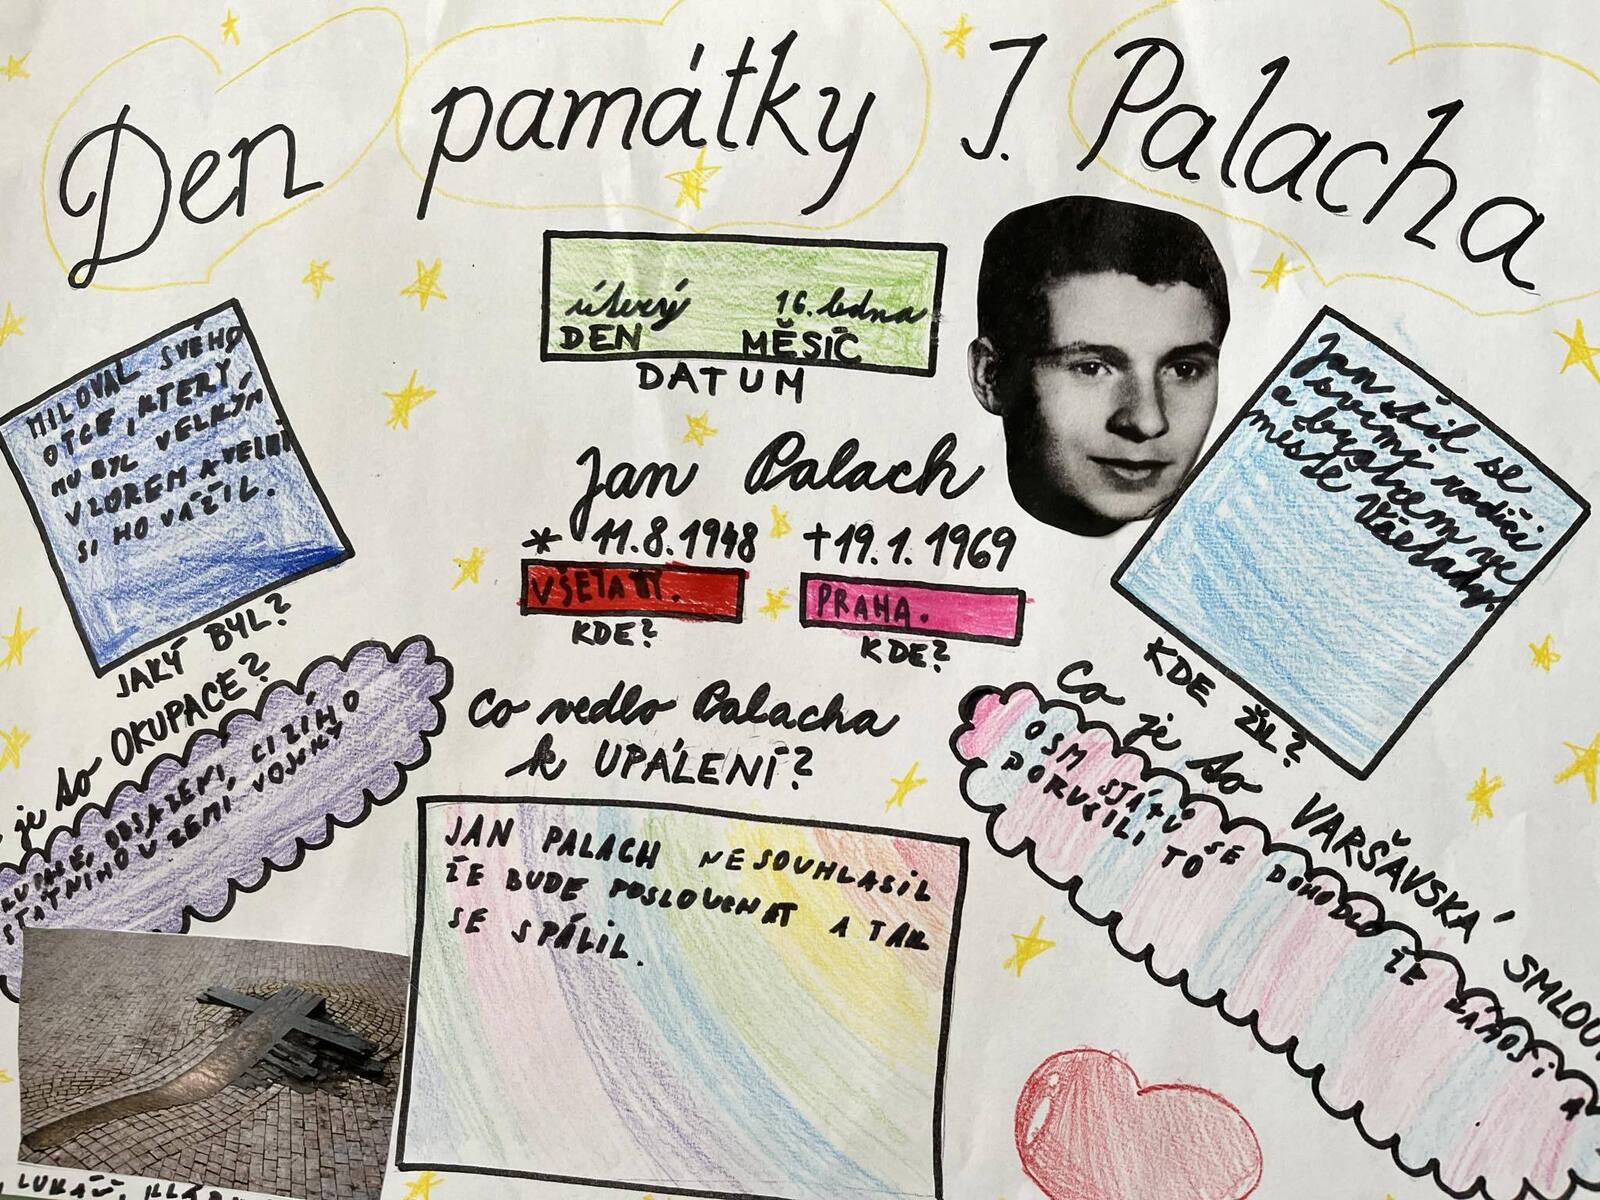 Den památky J. Palacha
úterý 16. ledna
DEN MĚSÍC
DATUM
MILOVAL SVÉHO
OTCE, KTERÝ,
MU BYL VELKÝM
VZOREM A VELMI
SI HO VÁŽIL.
JAKÝ BYL?
Jan Palach
* 11.8.1948 +19.1.1969
VŠETATY. PRAHA.
KDE? KDE?
Jan žil se
svými rodiči
a bratrem ve
městě Všetady.
KDE ŽIL?
je to OKUPACE?
OBSAZENÍ, CIZÍHO
STÁTNÍHO ÚZEMÍ VOJSKY
Co vedlo Palacha
k UPÁLENÍ?
JAN PALACH NESOUHLASIL
ŽE BUDE POSLOUCHAT A TAK
SE SPÁLIL.
Co je to VARŠAVSKÁ
OSM STÁTŮ SE DOHODLO ŽE
PORUČILI TO
LUKÁŠ,